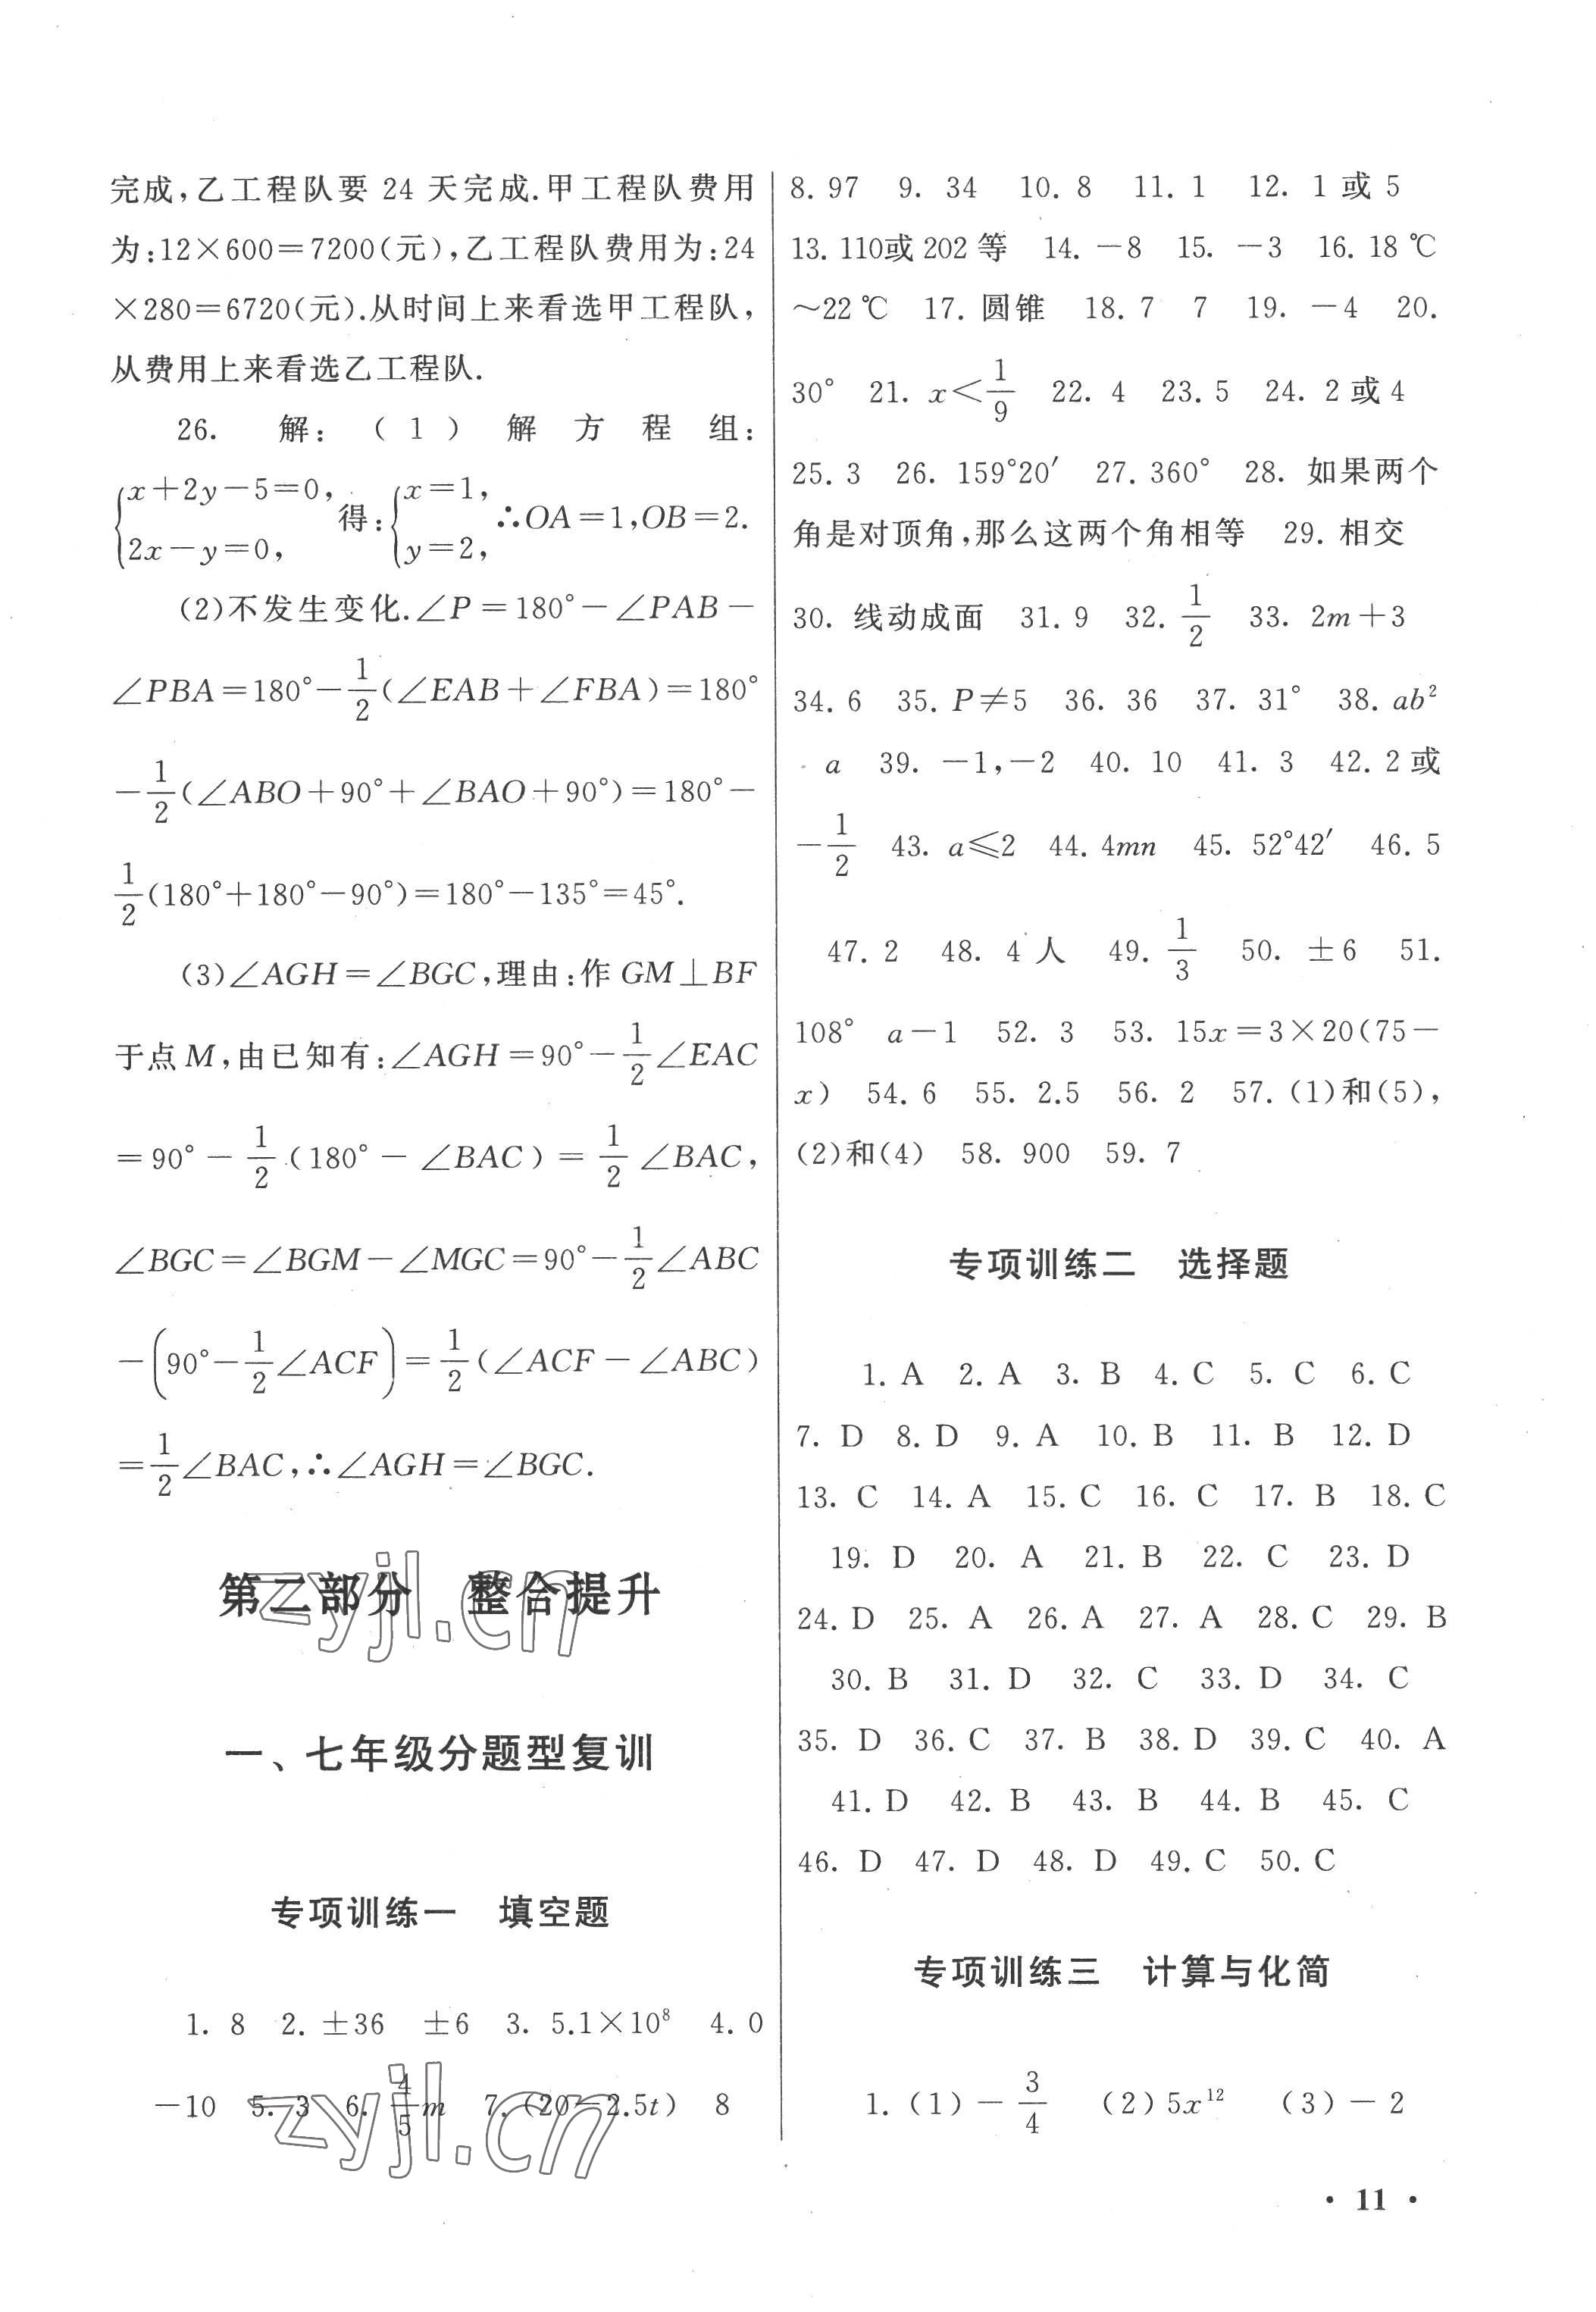 完成,乙工程队要 24 天完成.甲工程队费用
为:12×600=7200(元),乙工程队费用为:24
×280=6720(元).从时间上来看选甲工程队,
从费用上来看选乙工程队.
26. 解:(1)解方程组:
{x+2y-5=0, 2x-y=0, 得:{x=1, y=2, ∴OA=1,OB=2.
(2)不发生变化.∠P=180°-∠PAB-
∠PBA=180°-1/2(∠EAB+∠FBA)=180°
-1/2(∠ABO+90°+∠BAO+90°)=180°-
1/2(180°+180°-90°)=180°-135°=45°.
(3)∠AGH=∠BGC,理由:作 GM⊥BF
于点 M,由已知有:∠AGH=90°-1/2∠EAC
=90°-1/2(180°-∠BAC)=1/2∠BAC,
∠BGC=∠BGM-∠MGC=90°-1/2∠ABC
-(90°-1/2∠ACF)=1/2(∠ACF-∠ABC)
=1/2∠BAC,∴∠AGH=∠BGC.
第二部分 整合提升
zyjl.cn
一、七年级分题型复训
专项训练一 填空题
1. 8 2. ±36 ±6 3. 5.1×10⁸ 4. 0
-10 5. 3 6. 4/5m 7. (20-2.5t) 8
zyjl.cn
8. 97 9. 34 10. 8 11. 1 12. 1 或 5
13. 110或 202 等 14. -8 15. -3 16. 18 ℃
~22 ℃ 17. 圆锥 18. 7 7 19. -4 20.
30° 21. x<1/9 22. 4 23. 5 24. 2 或 4
25. 3 26. 159°20′ 27. 360° 28. 如果两个
角是对顶角,那么这两个角相等 29. 相交
30. 线动成面 31. 9 32. 1/2 33. 2m+3
34. 6 35. P≠5 36. 36 37. 31° 38. ab²
a 39. -1,-2 40. 10 41. 3 42. 2 或
-1/2 43. a≤2 44. 4mn 45. 52°42′ 46. 5
47. 2 48. 4 人 49. 1/3 50. ±6 51.
108° a-1 52. 3 53. 15x=3×20(75-
x) 54. 6 55. 2.5 56. 2 57. (1)和(5),
(2)和(4) 58. 900 59. 7
专项训练二 选择题
1. A 2. A 3. B 4. C 5. C 6. C
7. D 8. D 9. A 10. B 11. B 12. D
13. C 14. A 15. C 16. C 17. B 18. C
19. D 20. A 21. B 22. C 23. D
24. D 25. A 26. A 27. A 28. C 29. B
30. B 31. D 32. C 33. D 34. C
35. D 36. C 37. B 38. D 39. C 40. A
41. D 42. B 43. B 44. B 45. C
46. D 47. D 48. D 49. C 50. C
专项训练三 计算与化简
1. (1)-3/4 (2)5x¹² (3)-2
· 11 ·